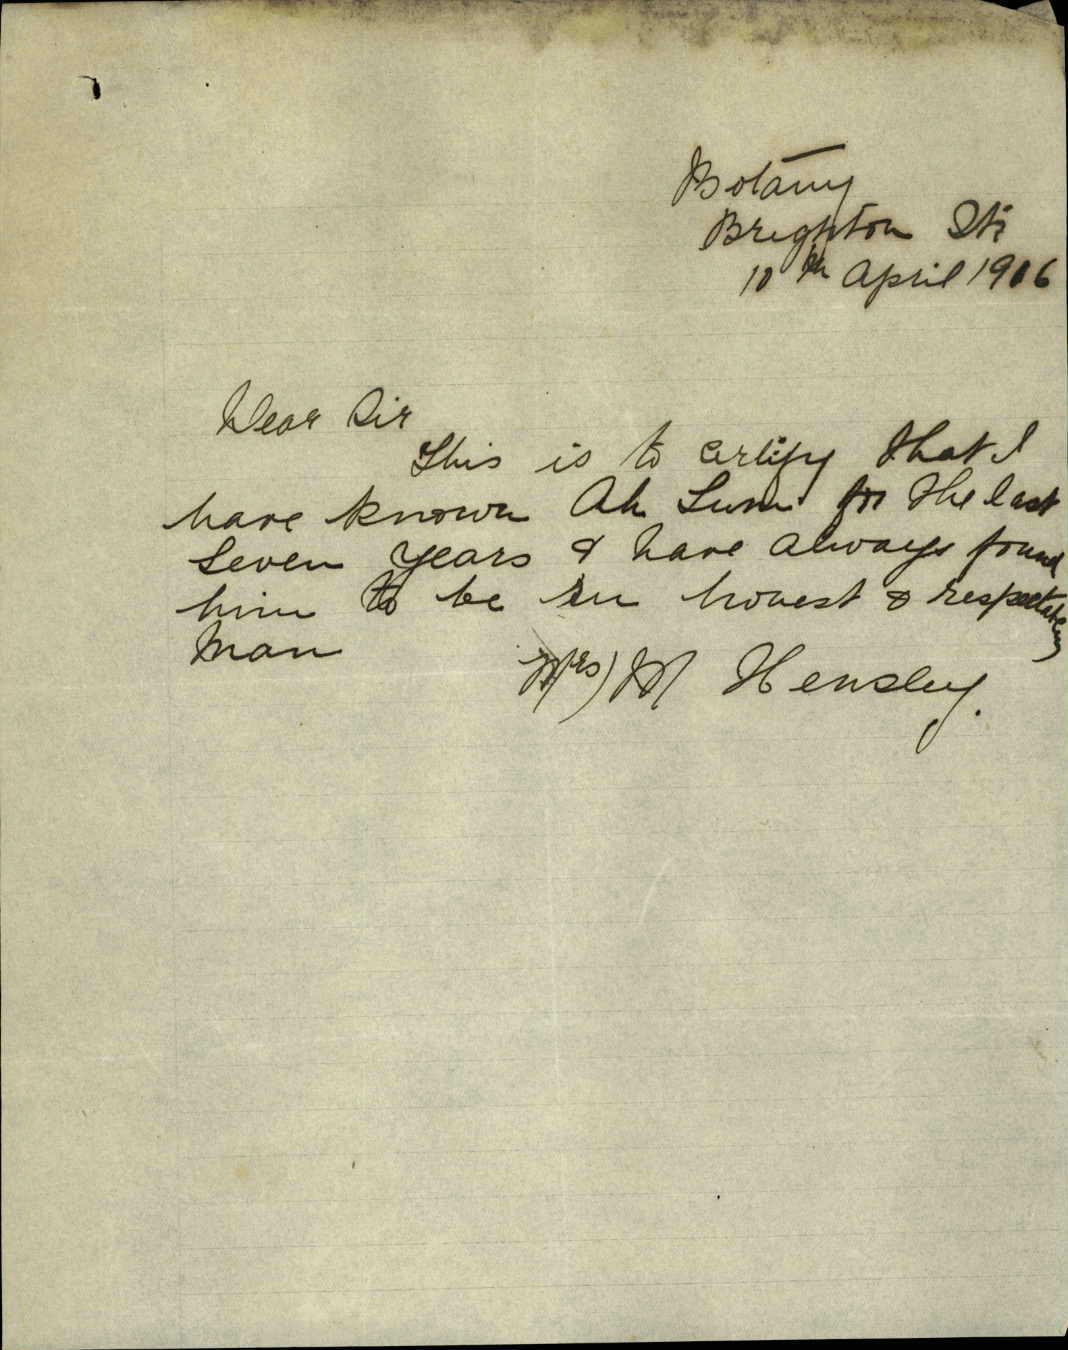 Botany
Brighton St
10th April 1906
Dear Sir
This is to certify that I
have known Ah Lum for the last
seven years & have always found
him to be an honest & respectable
man
Mrs) M Hensley.